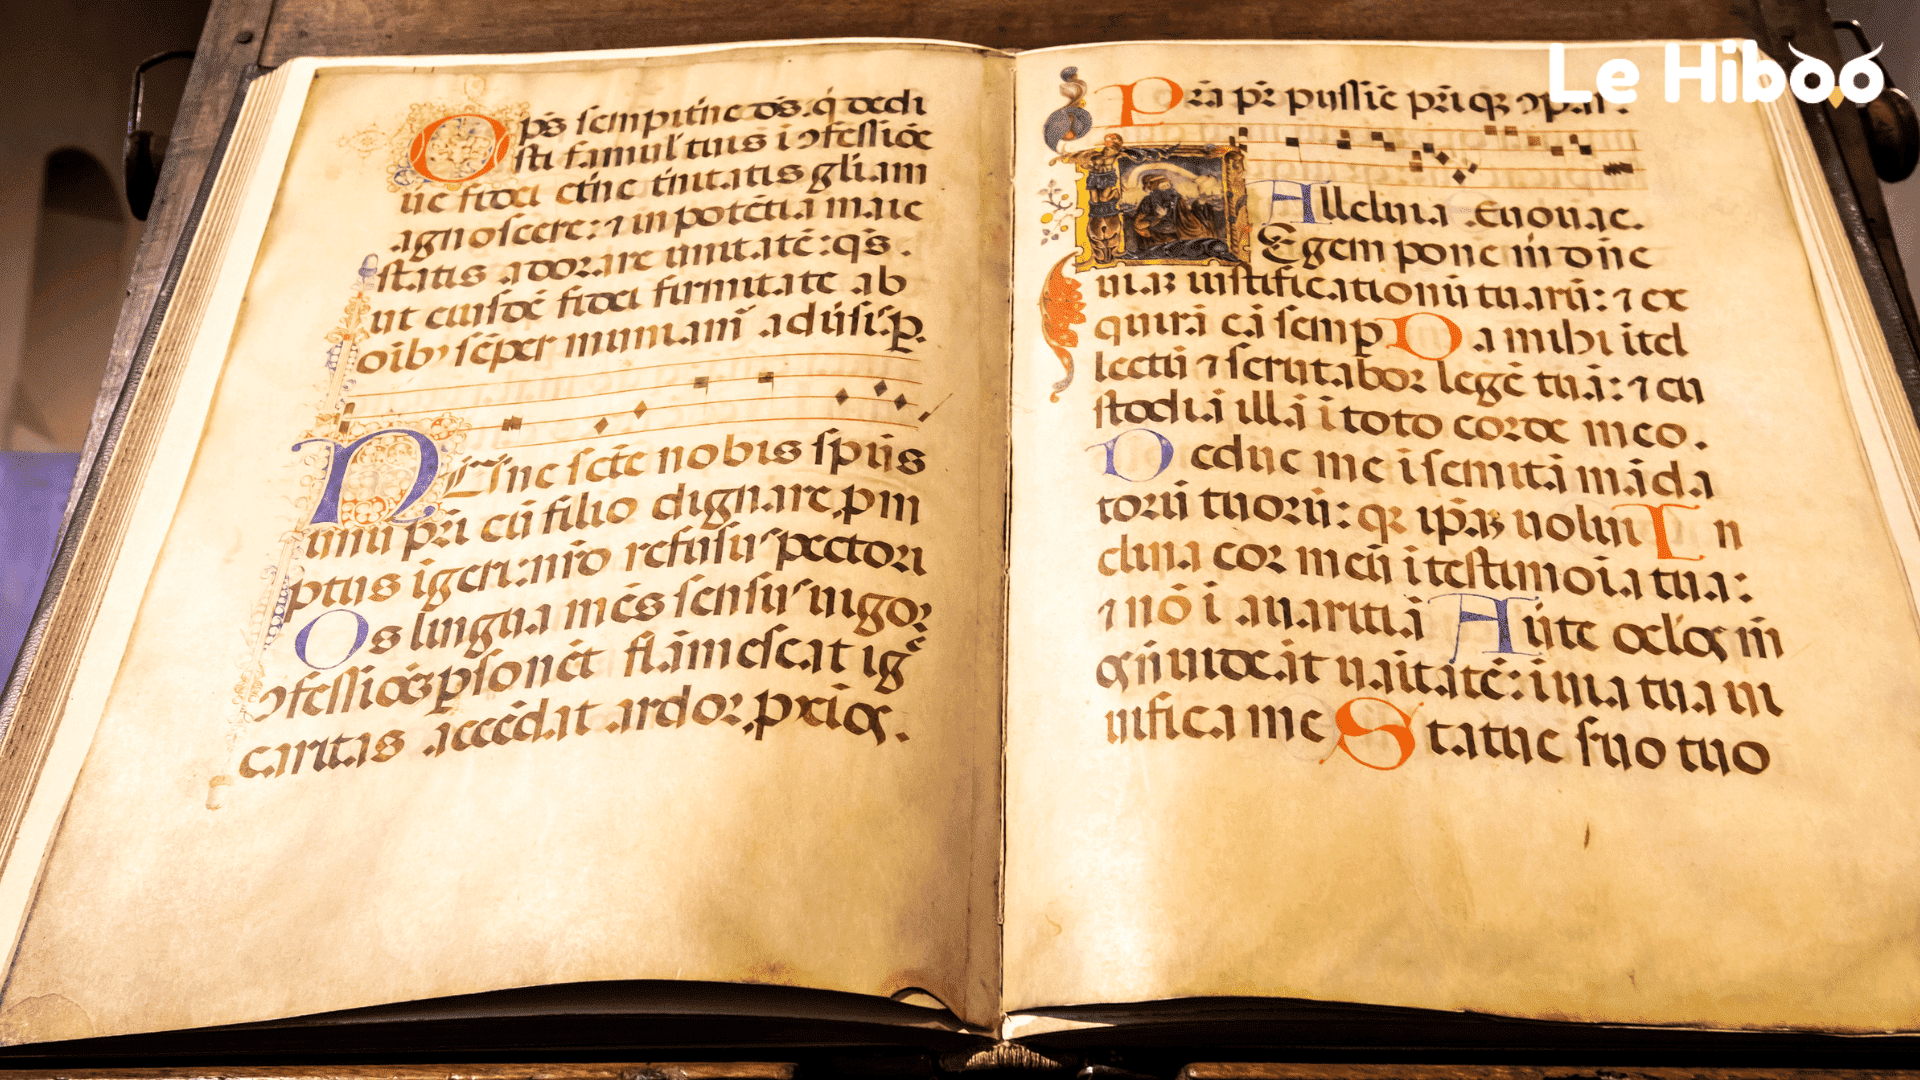 Le Hiboo
Op̄s sempit̄ne d̄s. q̇ dedi
sti famul' tuis i ꝯfessiōe
ue fidei et̄ne t̄nitatis gl̄iam
agnoscere: ⁊ in potētia maie
statis adorare unitatē: q̄s.
ut eiusdē fidei firmitate ab
oib' sēper muniam̄ adu̇sis
Nūnc scē nobis sp̄us
unū pr̄i cū filio dignare ꝓm
ptus igeri: nr̄o refusus pectori
Os lingua mēs sensus uigor
ꝯfessiōꝫ ꝑsonēt flāmescat igē
caritas accēdat ardor
Alleluia Euouae.
Legem pone m̄ dn̄e
uiaꝫ iustificationū tuarū: ⁊ ex
quirā eā semꝑ Da mihi itel
lectū ⁊ scrutabor legē tuā: ⁊ cu
stodiā illā i toto corde meo.
Deduc me i semitā māda
torū tuorū: qꝛ ip̄aꝫ uolui In
clina cor meū i testimoia tua:
⁊ nō i auaritiā Aute oc̄los m̄
os n̄ uideāt uaitatē: i uia tua ui
uifica me Statue s̄uo tuo